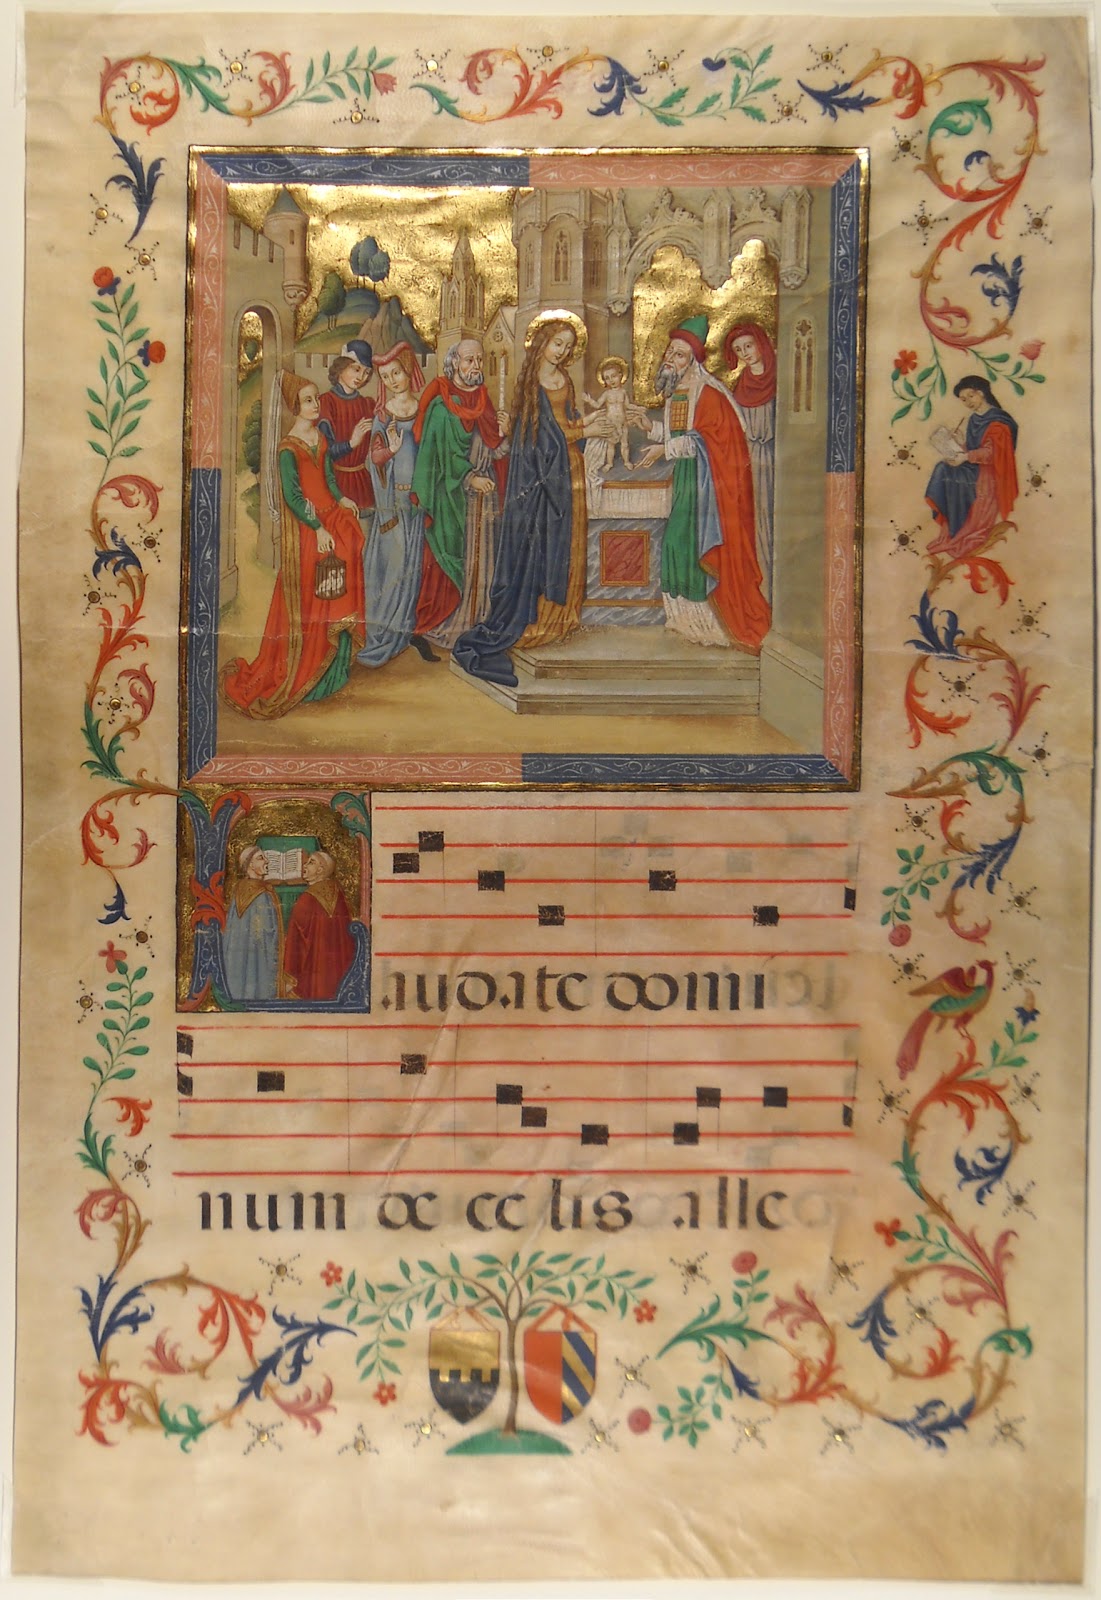 Laudate domi
num de celis alle